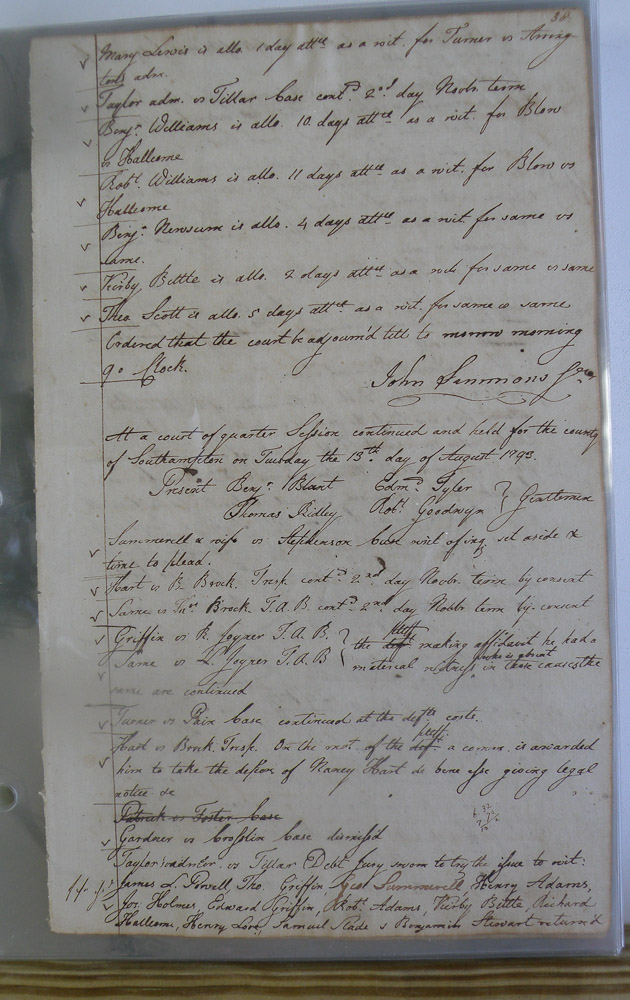 38
Mary Lewis is allo. 1 day attce as a wit. for Turner vs Arring
tons adm.
Taylor adm. vs Tillar Case contd. 2nd day Novbr term
Benjn. Williams is allo. 10 days attce as a wit. for Blow
vs Hallcome
Robt. Williams is allo. 11 days attce as a wit. for Blow vs
Hallcome
Benjn. Newsum is allo. 4 days attce as a wit for same vs
same.
Kirby Bittle is allo. 2 days attce as a wit for same vs same
Theo. Scott is allo. 5 days attce as a wit. for same vs same
Ordered that the court be adjourn'd till to morrow morning
9 o Clock.
John Simmons
At a court of quarter Session continued and held for the county
of Southampton on Tuesday the 13th day of August 1793.
Present Benjn. Blunt Edmd. Tyler
Thomas Ridley Robt. Goodwyn } Gentlemen
Summerell & wife vs Stephenson Case writ of inq set aside &
time to plead.
Hart vs B. Brock. Tresp. contd. 2nd day Novbr. term by consent
Same vs Brock T.A.B. contd. 2nd day Novbr term by consent
Griffin vs K. Joyner T.A.B. } the pltff making affidavit he had a
Same vs L. Joyner T.A.B } material witness who is absent in these causes the
same are continued
Turner vs Pain Case continued at the defts costs.
Hart vs Brock Tresp. On the mot. of the pltff. a comm. is awarded
him to take the depion of Nancy Hart de bene esse giving legal
notice &c
Patrick vs Foster Case
Gardner vs Crosslin Case dismiss'd
Taylor vs Tillar Debt Jury sworn to try the issue to wit:
James L. Powell, Tho. Griffin, Summerell Henry Adams,
Jos. Holmes, Edward Griffin, Robt. Adams, Kirby Bittle Richard
Hallcome, Henry Love, Samuel Slade & Benjamin Stewart return'd